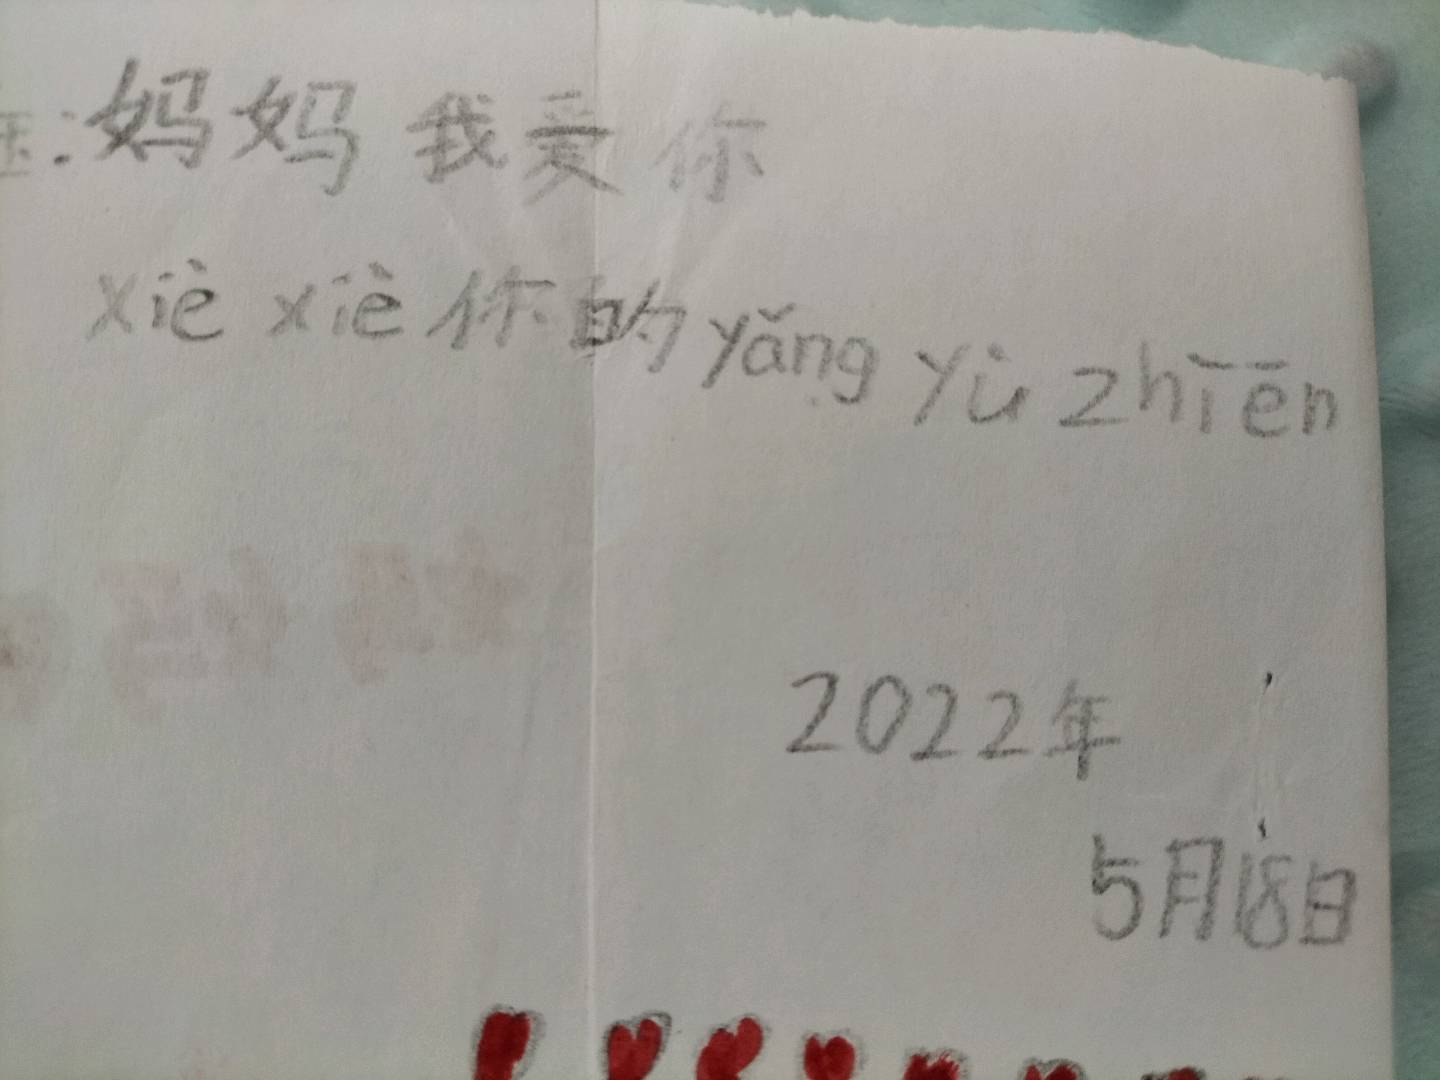 ：妈妈我爱你
xiè xiè 你的 yǎng yù zhī ēn
2022年
5月18日